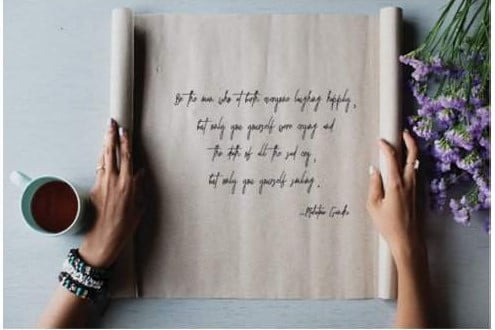 Be the man who at birth everyone laughing happily,
but only you yourself were crying and
the death of all the sad cry,
but only you yourself smiling.
_Mahatma Gandhi